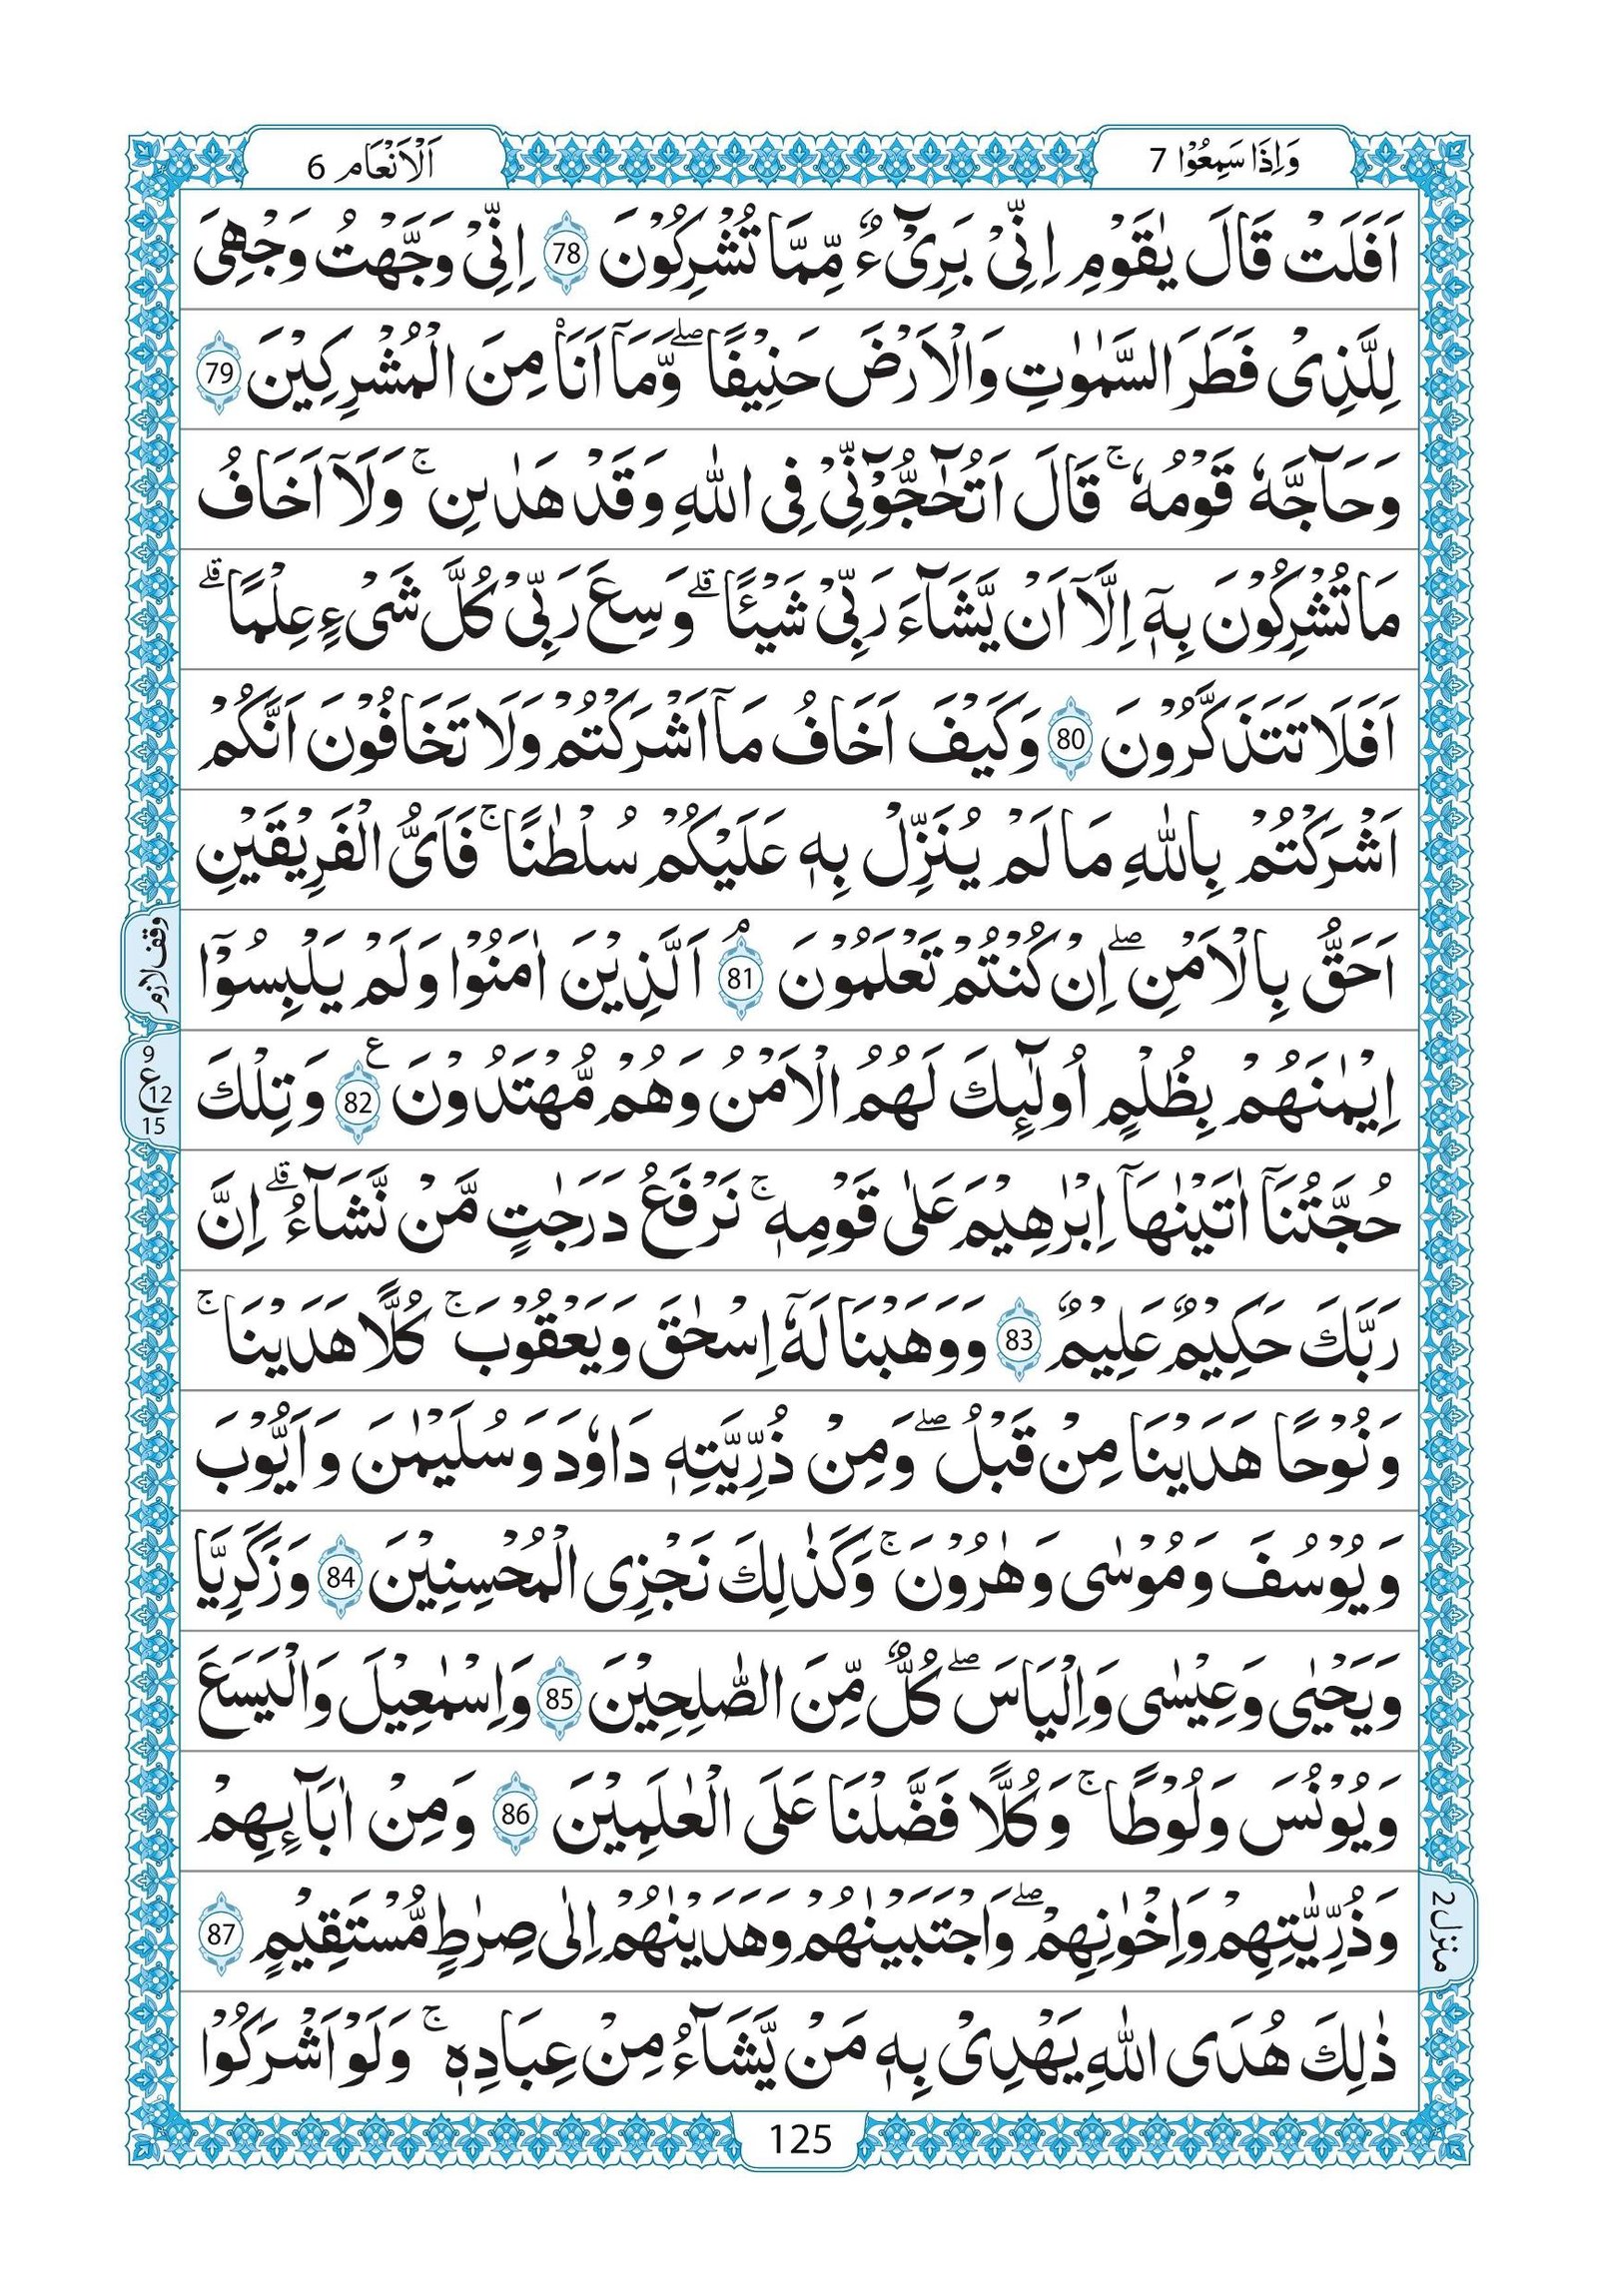 وَاِذَا سَمِعُوْا 7
اَلْاَنْعَام 6
اَفَلَتْ قَالَ يٰقَوْمِ اِنِّىْ بَرِىْٓءٌ مِّمَّا تُشْرِكُوْنَ 78 اِنِّىْ وَجَّهْتُ وَجْهِىَ
لِلَّذِىْ فَطَرَ السَّمٰوٰتِ وَالْاَرْضَ حَنِيْفًا ۖ وَّمَآ اَنَا۠ مِنَ الْمُشْرِكِيْنَ 79
وَحَآجَّهٗ قَوْمُهٗ ۚ قَالَ اَتُحٰٓجُّوْٓنِّىْ فِى اللّٰهِ وَقَدْ هَدٰىنِ ۚ وَلَآ اَخَافُ
مَا تُشْرِكُوْنَ بِهٖٓ اِلَّآ اَنْ يَّشَآءَ رَبِّىْ شَيْـًٔا ۗ وَسِعَ رَبِّىْ كُلَّ شَىْءٍ عِلْمًا ۗ
اَفَلَا تَتَذَكَّرُوْنَ 80 وَكَيْفَ اَخَافُ مَآ اَشْرَكْتُمْ وَلَا تَخَافُوْنَ اَنَّكُمْ
اَشْرَكْتُمْ بِاللّٰهِ مَا لَمْ يُنَزِّلْ بِهٖ عَلَيْكُمْ سُلْطٰنًا ۚ فَاَىُّ الْفَرِيْقَيْنِ
اَحَقُّ بِالْاَمْنِ ۖ اِنْ كُنْتُمْ تَعْلَمُوْنَ ۘ 81 اَلَّذِيْنَ اٰمَنُوْا وَلَمْ يَلْبِسُوْٓا
وقف لازم
اِيْمٰنَهُمْ بِظُلْمٍ اُولٰٓئِكَ لَهُمُ الْاَمْنُ وَهُمْ مُّهْتَدُوْنَ ع 82 وَتِلْكَ
9
ع 12
15
حُجَّتُنَآ اٰتَيْنٰهَآ اِبْرٰهِيْمَ عَلٰى قَوْمِهٖ ۚ نَرْفَعُ دَرَجٰتٍ مَّنْ نَّشَآءُ ۗ اِنَّ
رَبَّكَ حَكِيْمٌ عَلِيْمٌ 83 وَوَهَبْنَا لَهٗٓ اِسْحٰقَ وَيَعْقُوْبَ ۚ كُلًّا هَدَيْنَا ۚ
وَنُوْحًا هَدَيْنَا مِنْ قَبْلُ ۖ وَمِنْ ذُرِّيَّتِهٖ دَاوٗدَ وَسُلَيْمٰنَ وَاَيُّوْبَ
وَيُوْسُفَ وَمُوْسٰى وَهٰرُوْنَ ۚ وَكَذٰلِكَ نَجْزِى الْمُحْسِنِيْنَ 84 وَزَكَرِيَّا
وَيَحْيٰى وَعِيْسٰى وَاِلْيَاسَ ۖ كُلٌّ مِّنَ الصّٰلِحِيْنَ 85 وَاِسْمٰعِيْلَ وَالْيَسَعَ
وَيُوْنُسَ وَلُوْطًا ۚ وَكُلًّا فَضَّلْنَا عَلَى الْعٰلَمِيْنَ 86 وَمِنْ اٰبَآئِهِمْ
وَذُرِّيّٰتِهِمْ وَاِخْوٰنِهِمْ ۖ وَاجْتَبَيْنٰهُمْ وَهَدَيْنٰهُمْ اِلٰى صِرٰطٍ مُّسْتَقِيْمٍ 87
منزل 2
ذٰلِكَ هُدَى اللّٰهِ يَهْدِىْ بِهٖ مَنْ يَّشَآءُ مِنْ عِبَادِهٖ ۚ وَلَوْ اَشْرَكُوْا
125